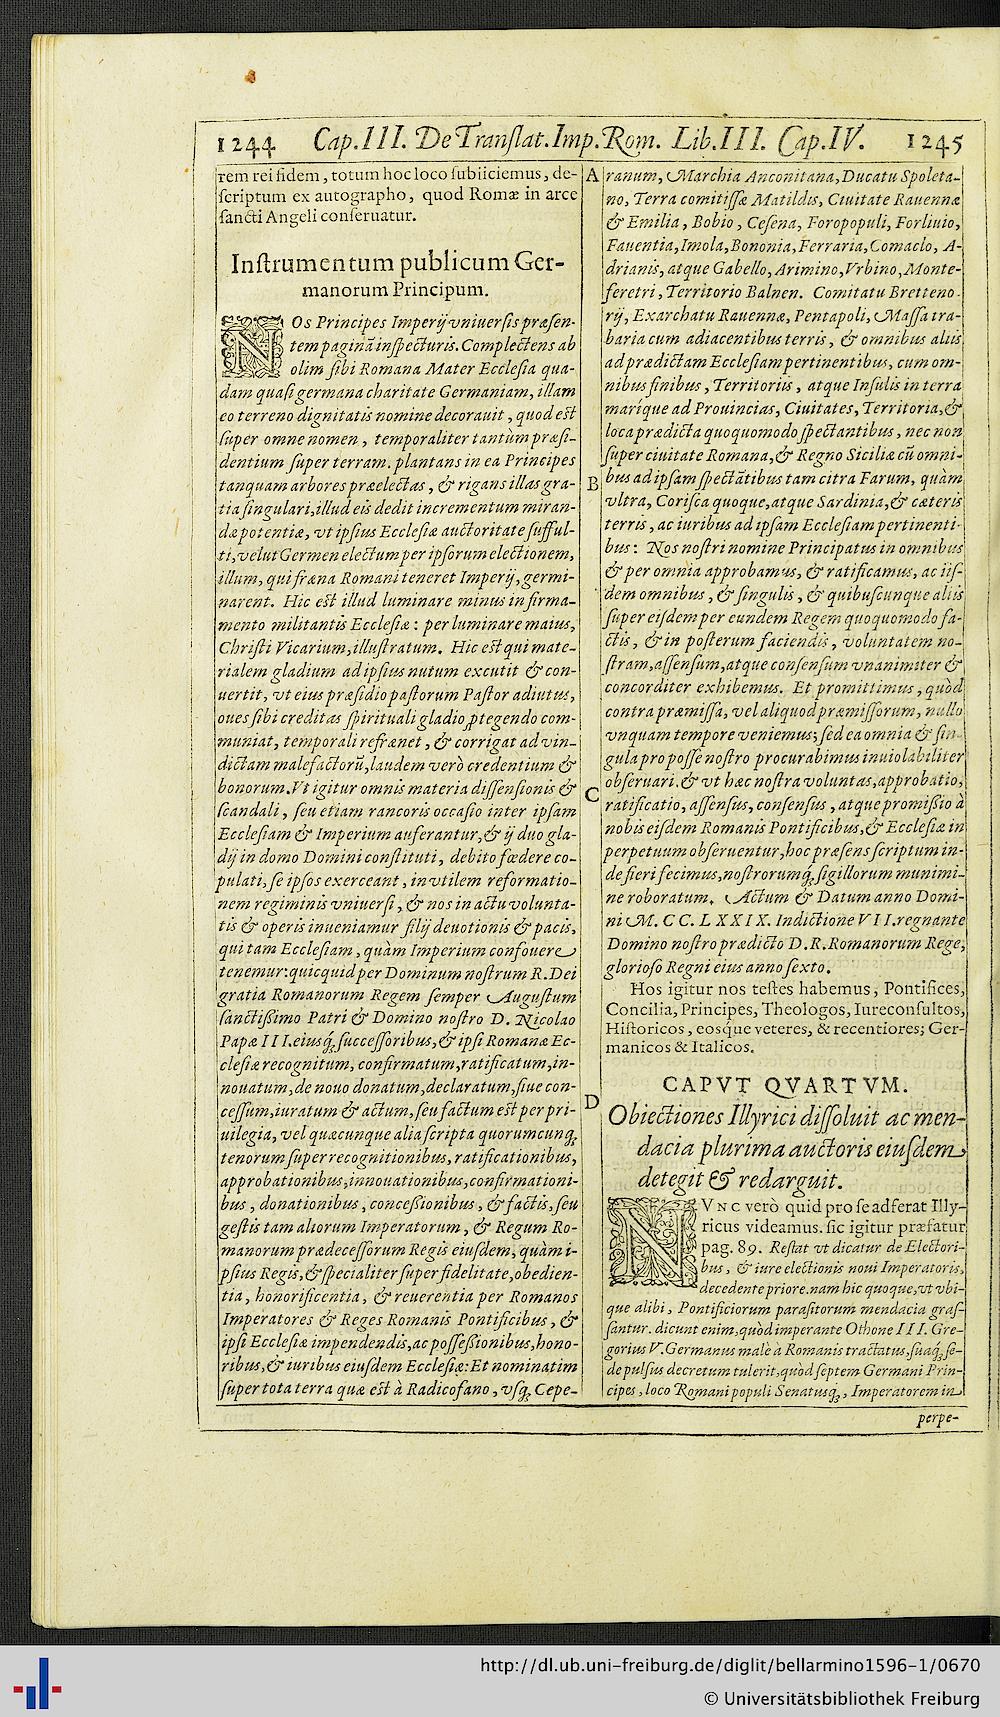 1244 Cap. III. De Translat. Imp. Rom. Lib. III. Cap. IV. 1245
rem rei fidem, totum hoc loco subiiciemus, de-
scriptum ex autographo, quod Romæ in arce
sancti Angeli conseruatur.
Instrumentum publicum Ger-
manorum Principum.
NOs Principes Imperij vniuersis præsen-
tem paginā inspecturis. Complectens ab
olim sibi Romana Mater Ecclesia qua-
dam quasi germana charitate Germaniam, illam
eo terreno dignitatis nomine decorauit, quod est
super omne nomen, temporaliter tantùm præsi-
dentium super terram. plantans in ea Principes
tanquam arbores præelectas, & rigans illas gra-
tia singulari, illud eis dedit incrementum miran-
dæ potentiæ, vt ipsius Ecclesiæ auctoritate sufful-
ti, velut Germen electum per ipsorum electionem,
illum, qui fræna Romani teneret Imperij, germi-
narent. Hic est illud luminare minus in firma-
mento militantis Ecclesiæ: per luminare maius,
Christi Vicarium, illustratum. Hic est qui mate-
rialem gladium ad ipsius nutum excutit & con-
uertit, vt eius præsidio pastorum Pastor adiutus,
oues sibi creditas spirituali gladio ꝓtegendo com-
muniat, temporali refrænet, & corrigat ad vin-
dictam malefactorū, laudem verò credentium &
bonorum. Vt igitur omnis materia dissensionis &
scandali, seu etiam rancoris occasio inter ipsam
Ecclesiam & Imperium auferantur, & ij duo gla-
dij in domo Domini constituti, debito fœdere co-
pulati, se ipsos exerceant, in vtilem reformatio-
nem regiminis vniuersi, & nos in actu volunta-
tis & operis inueniamur filij deuotionis & pacis,
qui tam Ecclesiam, quàm Imperium confouere
tenemur: quicquid per Dominum nostrum R. Dei
gratia Romanorum Regem semper Augustum
sanctißimo Patri & Domino nostro D. Nicolao
Papæ III. eiusq́, successoribus, & ipsi Romanæ Ec-
clesiæ recognitum, confirmatum, ratificatum, in-
nouatum, de nouo donatum, declaratum, siue con-
cessum, iuratum & actum, seu factum est per pri-
uilegia, vel quæcunque alia scripta quorumcunq,
tenorum super recognitionibus, ratificationibus,
approbationibus, innouationibus, confirmationi-
bus, donationibus, conceßionibus, & factis, seu
gestis tam aliorum Imperatorum, & Regum Ro-
manorum prædecessorum Regis eiusdem, quàm i-
psius Regis, & specialiter super fidelitate, obedien-
tia, honorificentia, & reuerentia per Romanos
Imperatores & Reges Romanis Pontificibus, &
ipsi Ecclesiæ impendendis, ac posseßionibus, hono-
ribus, & iuribus eiusdem Ecclesiæ: Et nominatim
super tota terra quæ est à Radicofano, vsq, Cepe-
A
B
C
D
ranum, Marchia Anconitana, Ducatu Spoleta-
no, Terra comitissæ Matildis, Ciuitate Rauennæ
& Emilia, Bobio, Cesena, Foropopuli, Forliuio,
Fauentia, Imola, Bononia, Ferraria, Comaclo, A-
drianis, atque Gabello, Arimino, Vrbino, Monte-
feretri, Territorio Balnen. Comitatu Bretteno-
rij, Exarchatu Rauennæ, Pentapoli, Massa tra-
baria cum adiacentibus terris, & omnibus aliis
ad prædictam Ecclesiam pertinentibus, cum om-
nibus finibus, Territoriis, atque Insulis in terra
maríque ad Prouincias, Ciuitates, Territoria, &
loca prædicta quoquomodo spectantibus, nec non
super ciuitate Romana, & Regno Siciliæ cū omni-
bus ad ipsam spectātibus tam citra Farum, quàm
vltra, Corisca quoque, atque Sardinia, & cæteris
terris, ac iuribus ad ipsam Ecclesiam pertinenti-
bus: Nos nostri nomine Principatus in omnibus
& per omnia approbamus, & ratificamus, ac iis-
dem omnibus, & singulis, & quibuscunque aliis
super eisdem per eundem Regem quoquomodo fa-
ctis, & in posterum faciendis, voluntatem no-
stram, assensum, atque consensum vnanimiter &
concorditer exhibemus. Et promittimus, quòd
contra præmissa, vel aliquod præmissorum, nullo
vnquam tempore veniemus; sed ea omnia & sin-
gula pro posse nostro procurabimus inuiolabiliter
obseruari. & vt hæc nostra voluntas, approbatio,
ratificatio, assensus, consensus, atque promißio à
nobis eisdem Romanis Pontificibus, & Ecclesiæ in
perpetuum obseruentur, hoc præsens scriptum in-
de fieri fecimus, nostrorumq́, sigillorum munimi-
ne roboratum. Actum & Datum anno Domi-
ni M. CC. LXXIX. Indictione VII. regnante
Domino nostro prædicto D. R. Romanorum Rege,
glorioso Regni eius anno sexto.
Hos igitur nos testes habemus, Pontifices,
Concilia, Principes, Theologos, Iureconsultos,
Historicos, eosque veteres, & recentiores; Ger-
manicos & Italicos.
CAPVT QVARTVM.
Obiectiones Illyrici dissoluit ac men-
dacia plurima auctoris eiusdem
detegit & redarguit.
NVNC verò quid pro se adferat Illy-
ricus videamus. sic igitur præfatur
pag. 89. Restat vt dicatur de Electori-
bus, & iure electionis noui Imperatoris,
decedente priore. nam hic quoque, vt vbi-
que alibi, Pontificiorum parasitorum mendacia gras-
santur. dicunt enim, quòd imperante Othone III. Gre-
gorius V. Germanus malè à Romanis tractatus, suáq, se-
de pulsus decretum tulerit, quòd septem Germani Prin-
cipes, loco Romani populi Senatusq, Imperatorem in
perpe-
http://dl.ub.uni-freiburg.de/diglit/bellarmino1596-1/0670
© Universitätsbibliothek Freiburg